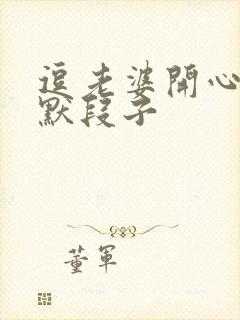 逗老婆開心
默段子
董軍